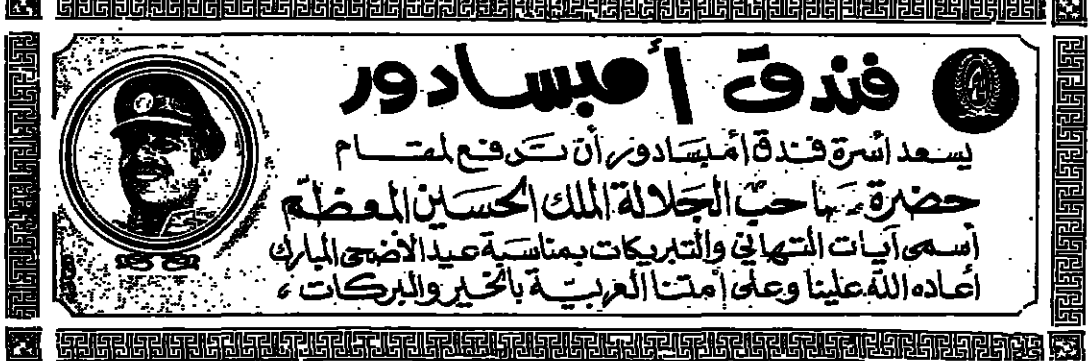 فندق أمبسادور
يسعد أسرة فندق أمبسادور أن ترفع لمقام
حضرة صاحب الجلالة الملك الحسين المعظم
أسمى آيات التهاني والتبريكات بمناسبة عيد الأضحى المبارك
أعاده الله علينا وعلى أمتنا العربية بالخير والبركات ،